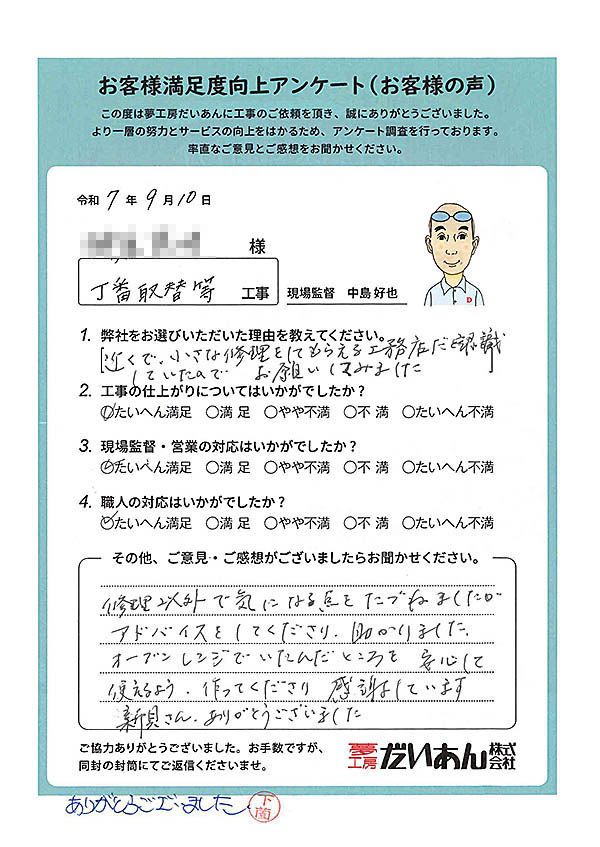 お客様満足度向上アンケート（お客様の声）
この度は夢工房だいあんに工事のご依頼を頂き、誠にありがとうございました。
より一層の努力とサービスの向上をはかるため、アンケート調査を行っております。
率直なご意見とご感想をお聞かせください。
令和 7 年 9 月 10 日
様
丁番取替等 工事 現場監督 中島 好也
D
1. 弊社をお選びいただいた理由を教えてください。
近くで、小さな修理をしてもらえる工務店だと認識
していたので お願いしてみました
2. 工事の仕上がりについてはいかがでしたか？
○たいへん満足 ○満 足 ○やや不満 ○不 満 ○たいへん不満
3. 現場監督・営業の対応はいかがでしたか？
○たいへん満足 ○満 足 ○やや不満 ○不 満 ○たいへん不満
4. 職人の対応はいかがでしたか？
○たいへん満足 ○満 足 ○やや不満 ○不 満 ○たいへん不満
その他、ご意見・ご感想がございましたらお聞かせください。
修理以外で気になる点をたづねましたが
アドバイスをしてくださり、助かりました。
オーブンレンジでいたんだところを 安心して
使えるよう、作ってくださり 感謝しています
新貝さん、ありがとうございました
ご協力ありがとうございました。お手数ですが、
同封の封筒にてご返信くださいませ。
夢工房だいあん株式会社
ありがとうございました。 下薗